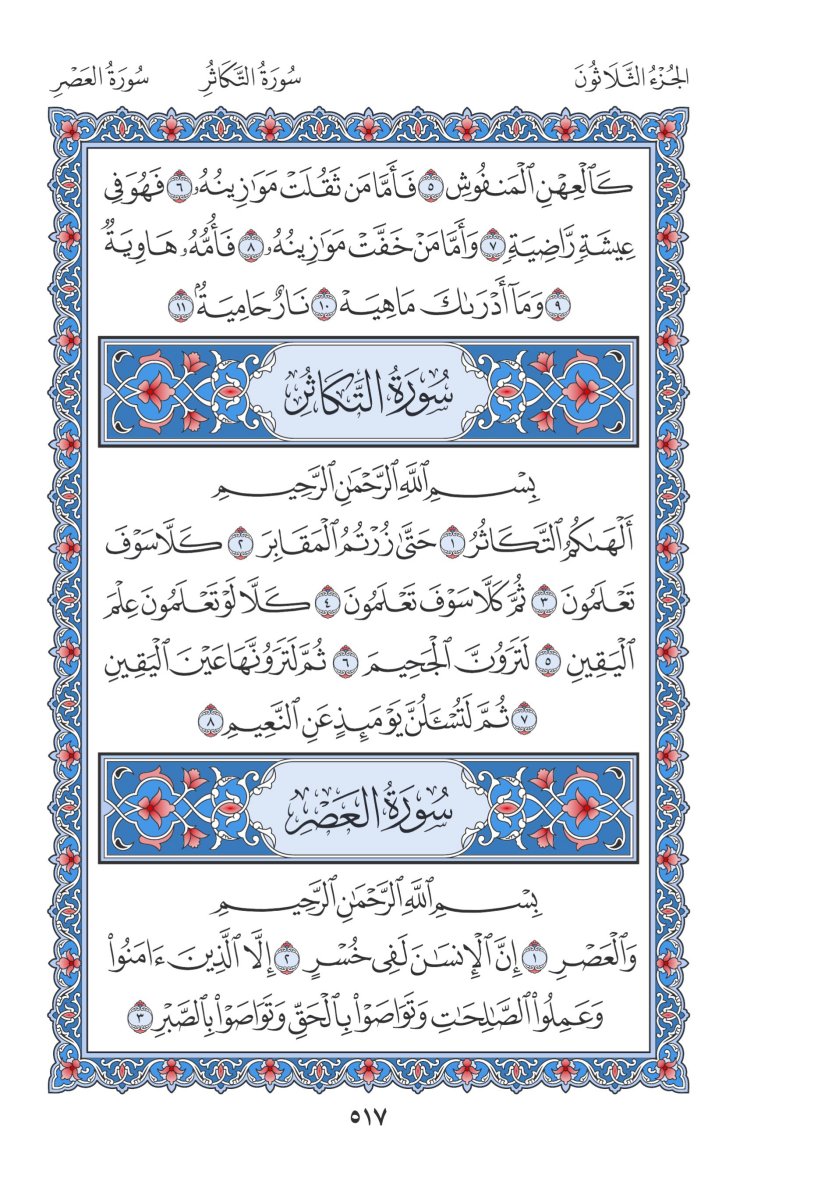 الجُزْءُ الثَّلَاثُونَ سُورَةُ التَّكَاثُرِ سُورَةُ العَصْرِ
كَٱلْعِهْنِ ٱلْمَنفُوشِ ٥ فَأَمَّا مَن ثَقُلَتْ مَوَٰزِينُهُۥ ٦ فَهُوَ فِى
عِيشَةٍ رَّاضِيَةٍ ٧ وَأَمَّا مَنْ خَفَّتْ مَوَٰزِينُهُۥ ٨ فَأُمُّهُۥ هَاوِيَةٌ
٩ وَمَآ أَدْرَىٰكَ مَاهِيَهْ ١٠ نَارٌ حَامِيَةٌۢ ١١
سُورَةُ التَّكَاثُرِ
بِسْمِ ٱللَّهِ ٱلرَّحْمَٰنِ ٱلرَّحِيمِ
أَلْهَىٰكُمُ ٱلتَّكَاثُرُ ١ حَتَّىٰ زُرْتُمُ ٱلْمَقَابِرَ ٢ كَلَّا سَوْفَ
تَعْلَمُونَ ٣ ثُمَّ كَلَّا سَوْفَ تَعْلَمُونَ ٤ كَلَّا لَوْ تَعْلَمُونَ عِلْمَ
ٱلْيَقِينِ ٥ لَتَرَوُنَّ ٱلْجَحِيمَ ٦ ثُمَّ لَتَرَوُنَّهَا عَيْنَ ٱلْيَقِينِ
٧ ثُمَّ لَتُسْـَٔلُنَّ يَوْمَئِذٍ عَنِ ٱلنَّعِيمِ ٨
سُورَةُ العَصْرِ
بِسْمِ ٱللَّهِ ٱلرَّحْمَٰنِ ٱلرَّحِيمِ
وَٱلْعَصْرِ ١ إِنَّ ٱلْإِنسَٰنَ لَفِى خُسْرٍ ٢ إِلَّا ٱلَّذِينَ ءَامَنُوا۟
وَعَمِلُوا۟ ٱلصَّٰلِحَٰتِ وَتَوَاصَوْا۟ بِٱلْحَقِّ وَتَوَاصَوْا۟ بِٱلصَّبْرِ ٣
٥١٧